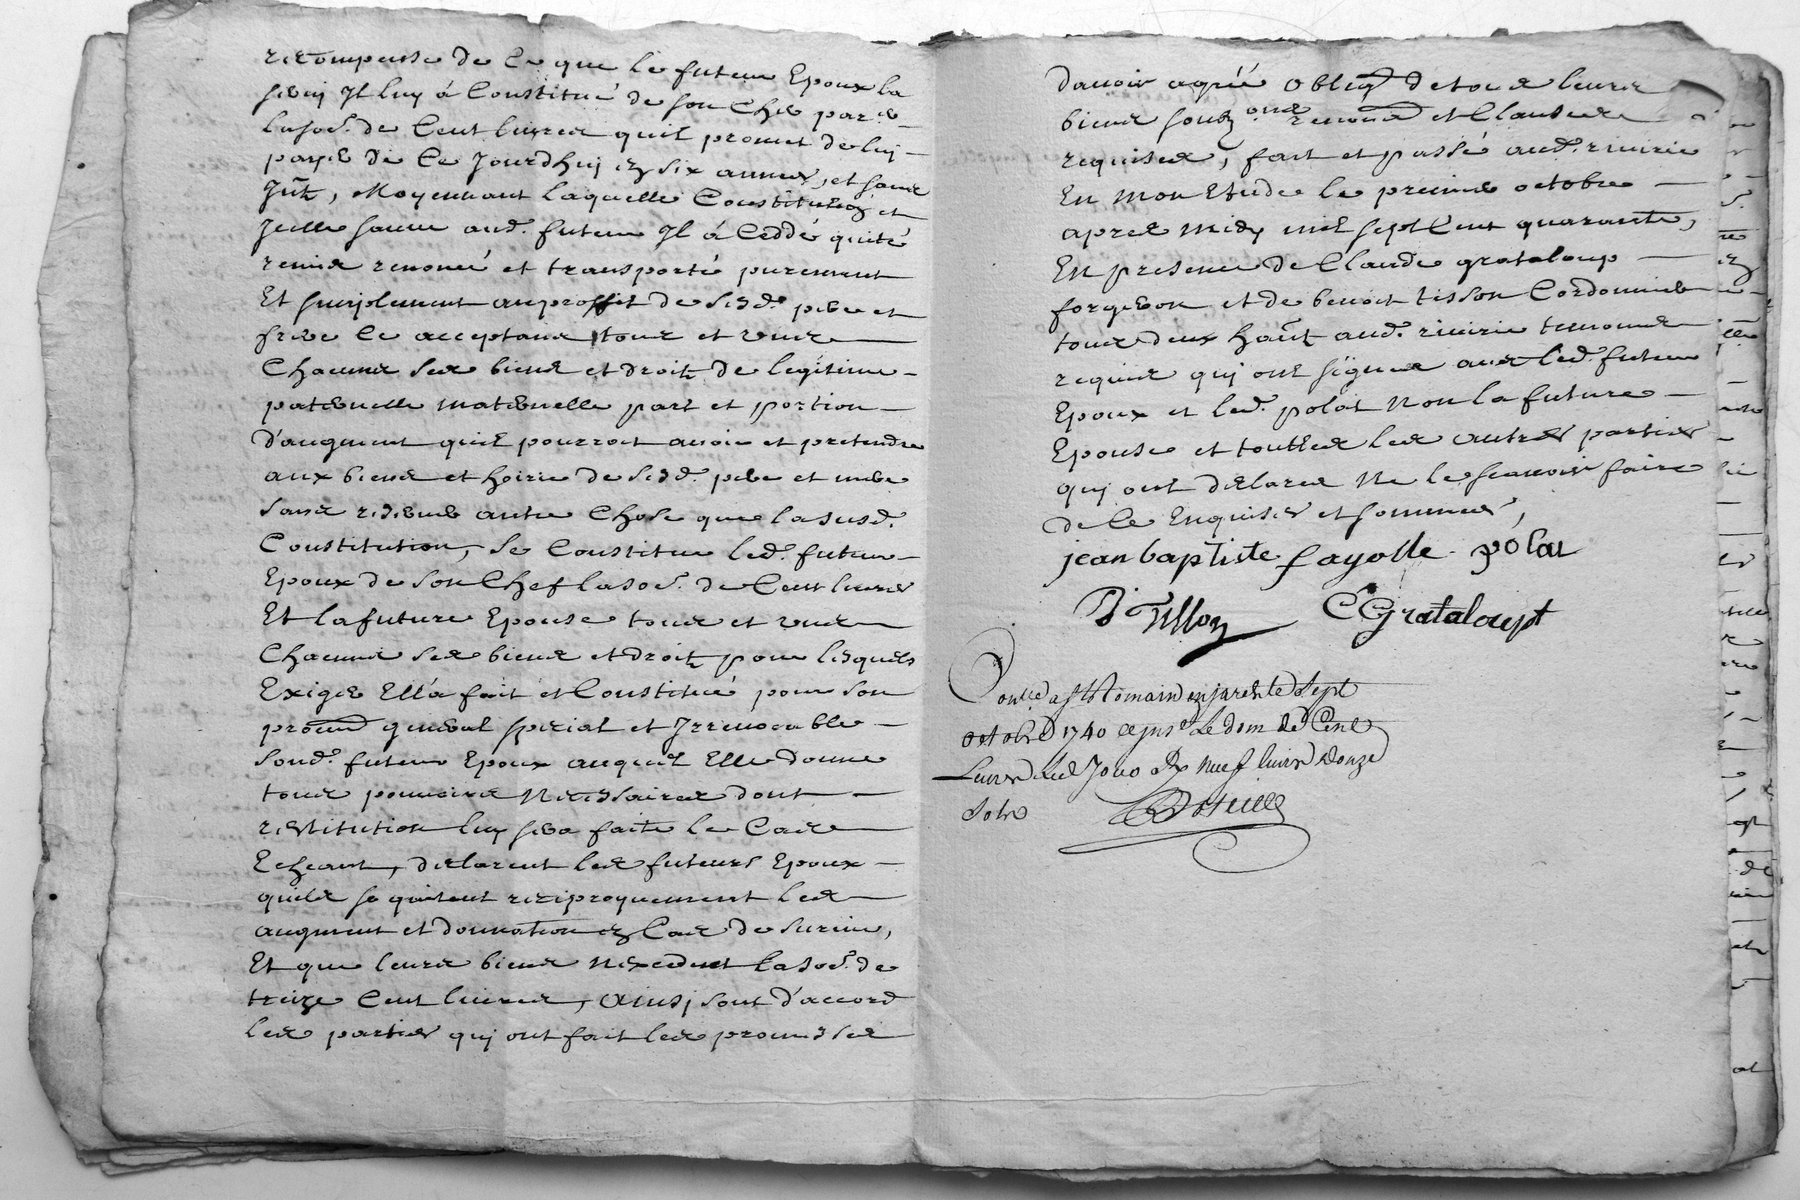 recompense de Ce que le futeur Epoux la
servy Il luy á Constitué de son Chef par
la so.e de Cent livres quil promet de luy
payer de Ce Jourdhuy en six années, et sans
Jnt, Moyennant laquelle Constitution et
Jcelle sauve aud. futeur Jl á Ceddé quité
remis renoncé et transporté purement
Et simplement au proffit de sesd. pere et
frere Ce acceptans tous et uns
Chacuns ses biens et droits de legitime
paternelle maternelle part et portion
d'augment quil pourroit avoir et pretendre
aux biens et hoirie de sesd. pere et mere
sans reserve autre Chose que la susd.
Constitution, Se Constitue led. futeur
Epoux de son Chef la so.e de Cent livres
Et la future Epouse tous et uns
Chacuns ses biens et droits pour lesquels
Exiger Ell'a fait et Constitué pour son
procur general special et Jrrevocable
sond. futeur Epoux auquel Elle donne
tous pouvoirs Necessaires dont
restitution luy sera faite le Cas
Echeant, declarent les futeurs Epoux
quils se quitent reciproquement les
augment et donnation en Cas de survie,
Et que leurs biens N'excedent la so.e de
treize Cent livres, Ainsi sont d'accord
les parties qui ont fait les promesses
d'avoir agréé Oblig de tous leurs
biens soubz renon et Clauses
requises, fait et passé aud. riverie
En mon Etude le premier octobre
apres midy mil sept Cent quarante,
En presence de Claude grataloup
forgeron et de benoit tisson Cordonnier
tous deux hants aud. riverie temoins
requis qui ont signés avec led. futeur
Epoux et led. polat Non la future
Epouse et touttes les autres parties
qui ont declarés Ne le scavoir faire
de Ce Enquises et sommés,
jean baptiste fayolle polat
B Tisson C Grataloupt
a St Romain en jarest le Sept
octobre 1740 Le dom de Cent
neuf livres douze
sols